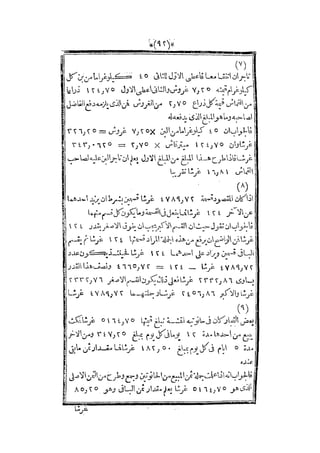 (٩٢)
(٧)
تاجران اتفقا معا فاعطى الاول للثانى ٤٥ كيلوغراما من بن كل
كيلوغرام قيمته ٧,٢٥ غروش والثانى اعطى الاول ١٢٤,٧٥ ذراعا
من القماش قيمة كل ذراع ٢,٧٥ من الغروش فمن الذى يلزمه دفع الفاضل
لصاحبه وما هو المبلغ الذى يدفعه له
فالجواب ان ٤٥ كيلوغراما من البن × ٧,٢٥ غروش = ٣٢٦,٢٥
غرشا وان ١٢٤,٧٥ × ٢,٧٥ = ٣٤٣,٠٦٢٥
غرشا فاذا طرح هذا المبلغ من المبلغ الاول يعلم ان تاجر البن عليه لصاحب
القماش ١٦,٨١ غرشا تقريبا
(٨)
اذا كان المقصود قسمة ٤٧٨٩,٧٢ غرشا قسمين بشرط ان يزيد احدهما
عن الآخر ١٢٤ غرشا فما يفعل فى القسمة وما يكون كل قسم منهما
فالجواب ان تقول حيث ان القسم الاكبر يجب ان يفوق الاصغر بقدر ١٢٤
غرشا فن الواضح ان يرفع من هذه الجملة المراد قسمتها ١٢٤ غرشا ثم يقسم
الباقى قسمين ويزاد على احدهما ١٢٤ غرشا فحينئذ يكون عدد
٤٧٨٩,٧٢ غرشا — ١٢٤ = ٤٦٦٥,٧٢ ونصف هذا القدر
يساوى ٢٣٣٢,٨٦ غرشا فعلى ذلك يكون القسم الاصغر ٢٣٣٢,٨٦
غرشا والاكبر ٢٤٥٦,٨٦ غرشا وجملتهما ٤٧٨٩,٧٢ غرشا
(٩)
بعض التجار كان فى حانوتيه اقمشة تبلغ قيمتها ٥١٦٤,٧٥ غرشا فكث
يبيع من احدهما مدة ١٢ يوما فى كل يوم بمبلغ ٣٤٧,٢٥ ومن الآخر
مدة ٥ ايام فى كل يوم بمبلغ ١٨٢,٥٠ غرشا فما مقدار ثمن ما بقى
عنده
فالجواب انه اذا عملت جملة ثمن المبيع من الحانوتين وجمع وطرح من الثمن الاصلى
الذى هو ٥١٦٤,٧٥ غرشا يعلم مقدار ثمن الباقى وهو ٨٥,٢٥
غرشا